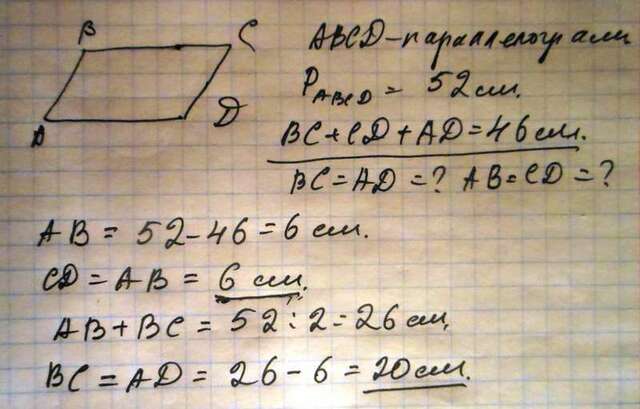 B C
A D
ABCD-параллелограмм
P_ABCD = 52 см.
BC+CD+AD=46 см.
BC=AD=? AB=CD=?
AB = 52-46=6 см.
CD=AB= 6 см.
AB+BC = 52:2=26 см.
BC=AD= 26-6=20 см.